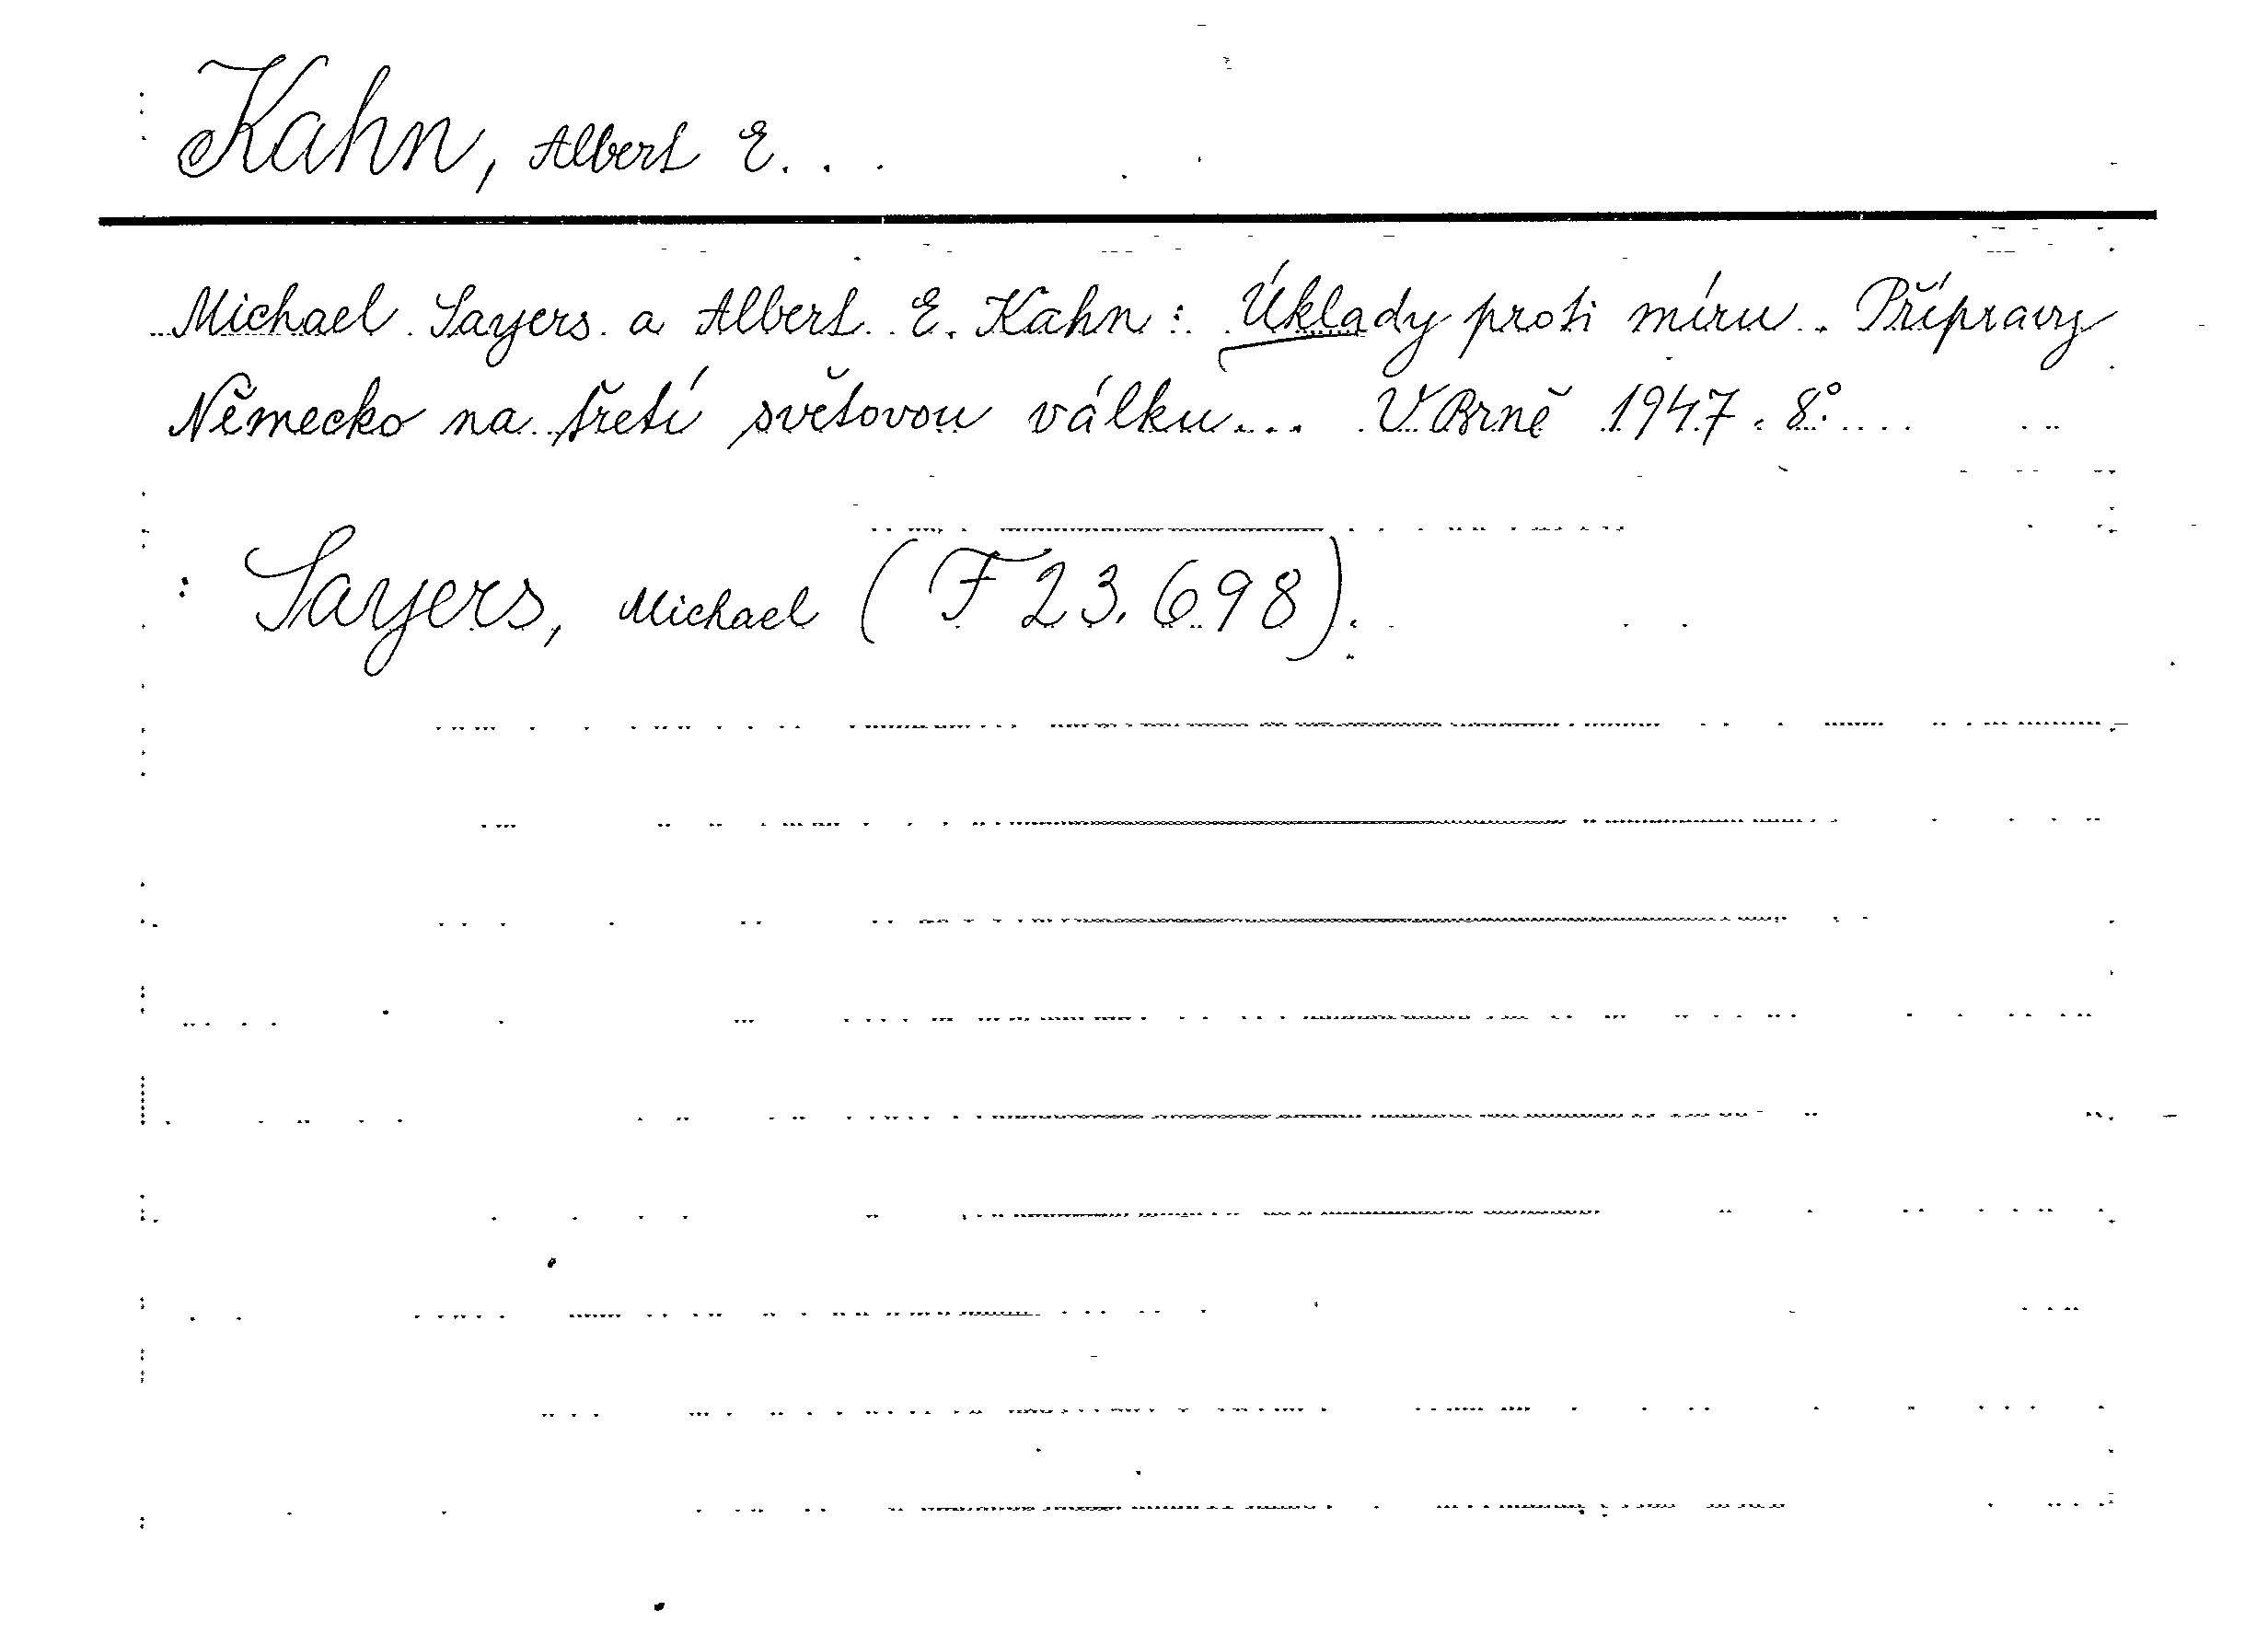 Kahn, Albert E.
Michael Sayers a Albert E. Kahn: Úklady proti míru. Přípravy
Německo na třetí světovou válku... V Brně 1947. 8°.
Sayers, Michael (F 23.698).